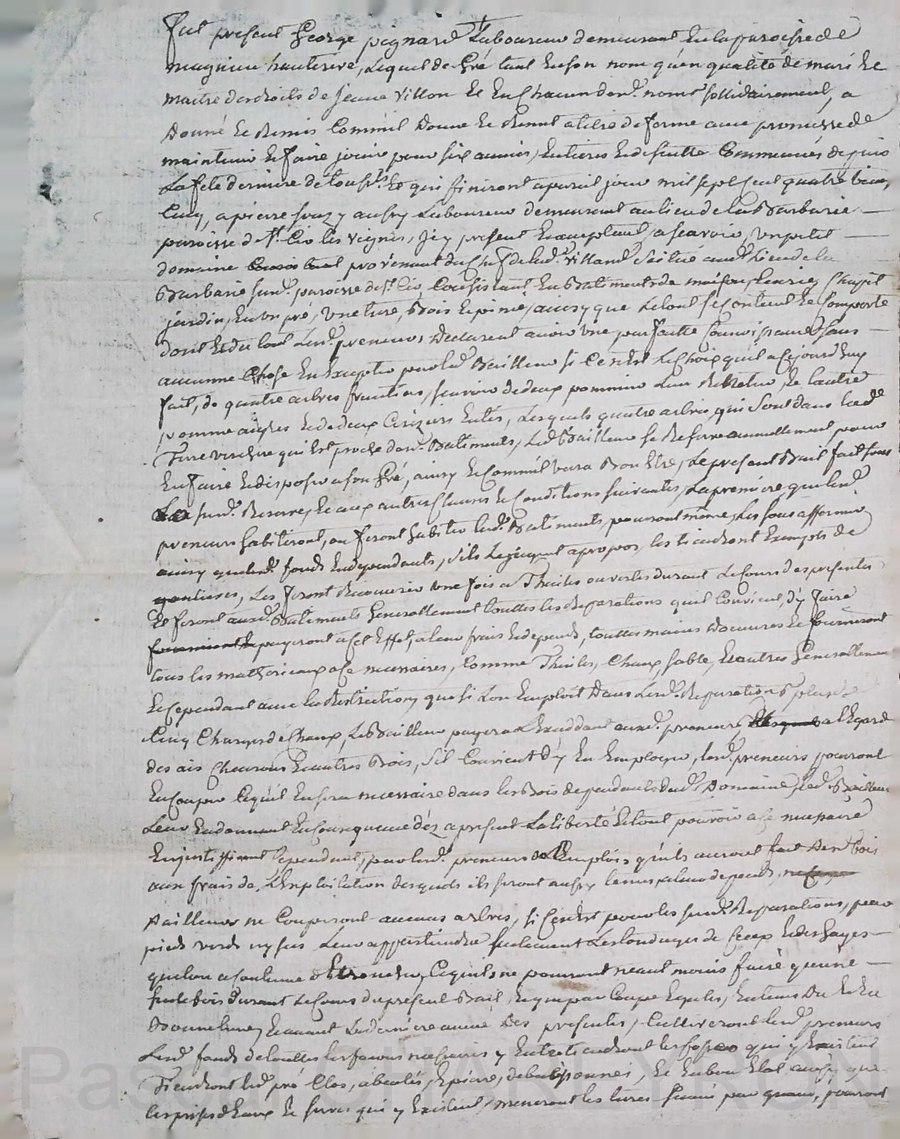 fut présent George pegnard Laboureur demeurant En la paroisse de
magnieu hauterive, Lequel de Gré tant En son nom qu'en qualité de mari Et
maitre des droits de jeane villon Et En chacun desd. noms sollidairement, a
Donné Et Remis Comme il Donne Et Remet a titre de ferme avec promesse de
maintenir Et faire jouir pour six années, Entieres Et de suitte Commencées depuis
La fete derniere de touss.ts Et qui finiront a pareil jour mil sept Cent quatre vingt
Cinq, a pierre aufry Laboureur demeurant au lieu de la Barbarie
paroisse de St. Cio les vignes, Icy present Et acceptant, a scavoir, un petit
domaine provenant du Chef de lad. villon, Scitué aud. Lieu de la
Barbarie sud. paroisse de St. Cio Consistant En Batiments de maison, Ecurie, Chapit
jardin, En un pré, une terre, Bois Et epinié, ainsy que Le tout se Contient Et Comporte
dont Et du tout Led. preneurs Declarent avoir une parfaitte Connoissance Sans
aucunne Chose En Excepter par led. Bailleur si Ce n'est Le Choix qu'il a cejourd'huy
fait, de quatre arbres fruitiers, scavoir de deux pommiers L'un Et L'autre
pomme aigres Et de deux Cerisiers Entés, Lesquels quatre arbres, qui Sont dans lad.
Terre verchere qui Est proche desd. Batiments, Led. Bailleur se Reserve annuellement pour
En faire Et disposer a son Gré, ainsy Et Comme il verra Bon Etre, Le present Bail fait sous
La sud. Reserve, Et aux autres Clauses Et Conditions suivantes, La premiere que led.
preneurs habiteront, ou feront habiter led. Batiments, pourront même, Les sous affermer
ainsy que led. fonds Independants, s'ils Le jugent a propos, les tiendront Exempts de
goutieres, Les feront Recouvrir une fois a Thuiles ouvertes durant Le Cours des presentes
Et feront aud. Batiments Generallement touttes les Reparations qu'il Convient d'y faire
payeront a Cet Effet, a leur frais Et depends, touttes mains D'oeuvres Et fourniront
tous les mathériaux a ce necessaires, Comme Thuiles, Chaux sable, Et autres Generallement
Et Cependant avec la Restriction, que si L'on Emploit Dans Led. Reparations plus de
Cinq Charges de Chaux, Led. Bailleur payera L'Excedant aud. preneurs, a l'Egard
des ais Chevrons Et autres Bois, s'il Convient d'y En Employer, Led. preneurs pourront
En Couper Ce qu'il En sera necessaire dans les Bois dependants dud. Domaine, Led. Bailleur
Leur En donnant En Conséquence dez a present La liberté Et tout pouvoir a ce necessaire
En justiffiant Cependant, par led. preneurs de L'Emplois qu'ils auront fait Desd. Bois
aux frais de L'Exploitation desquels ils seront aussy tenus a leur depends,
D'ailleurs ne Couperont aucuns arbres, si Ce n'est pour les sud. Reparations, par
pieds verds ny secs, Leur appartiendra seulement Les tondages de Ceux Et des hayes
que l'on a Coutume d'Etroncher, Ce qu'ils ne pourront neant moins faire qu'une
fois durant Le Cours du present Bail, Et que par Coupe Egales, En tems Du Et En
Bonne lune, Et avant La derniere année Des presentes, Cultiveront Led. preneurs
Led. fonds de touttes les façons necessaires y Entretiendront les fossés qui y Existent
Tiendront led. pré Clos, abealés, Epierré, debuissonnés, Et En bon Etat ainsy que
les prises d'Eaux Et serves qui y Existent, meneront les terres par , pourront